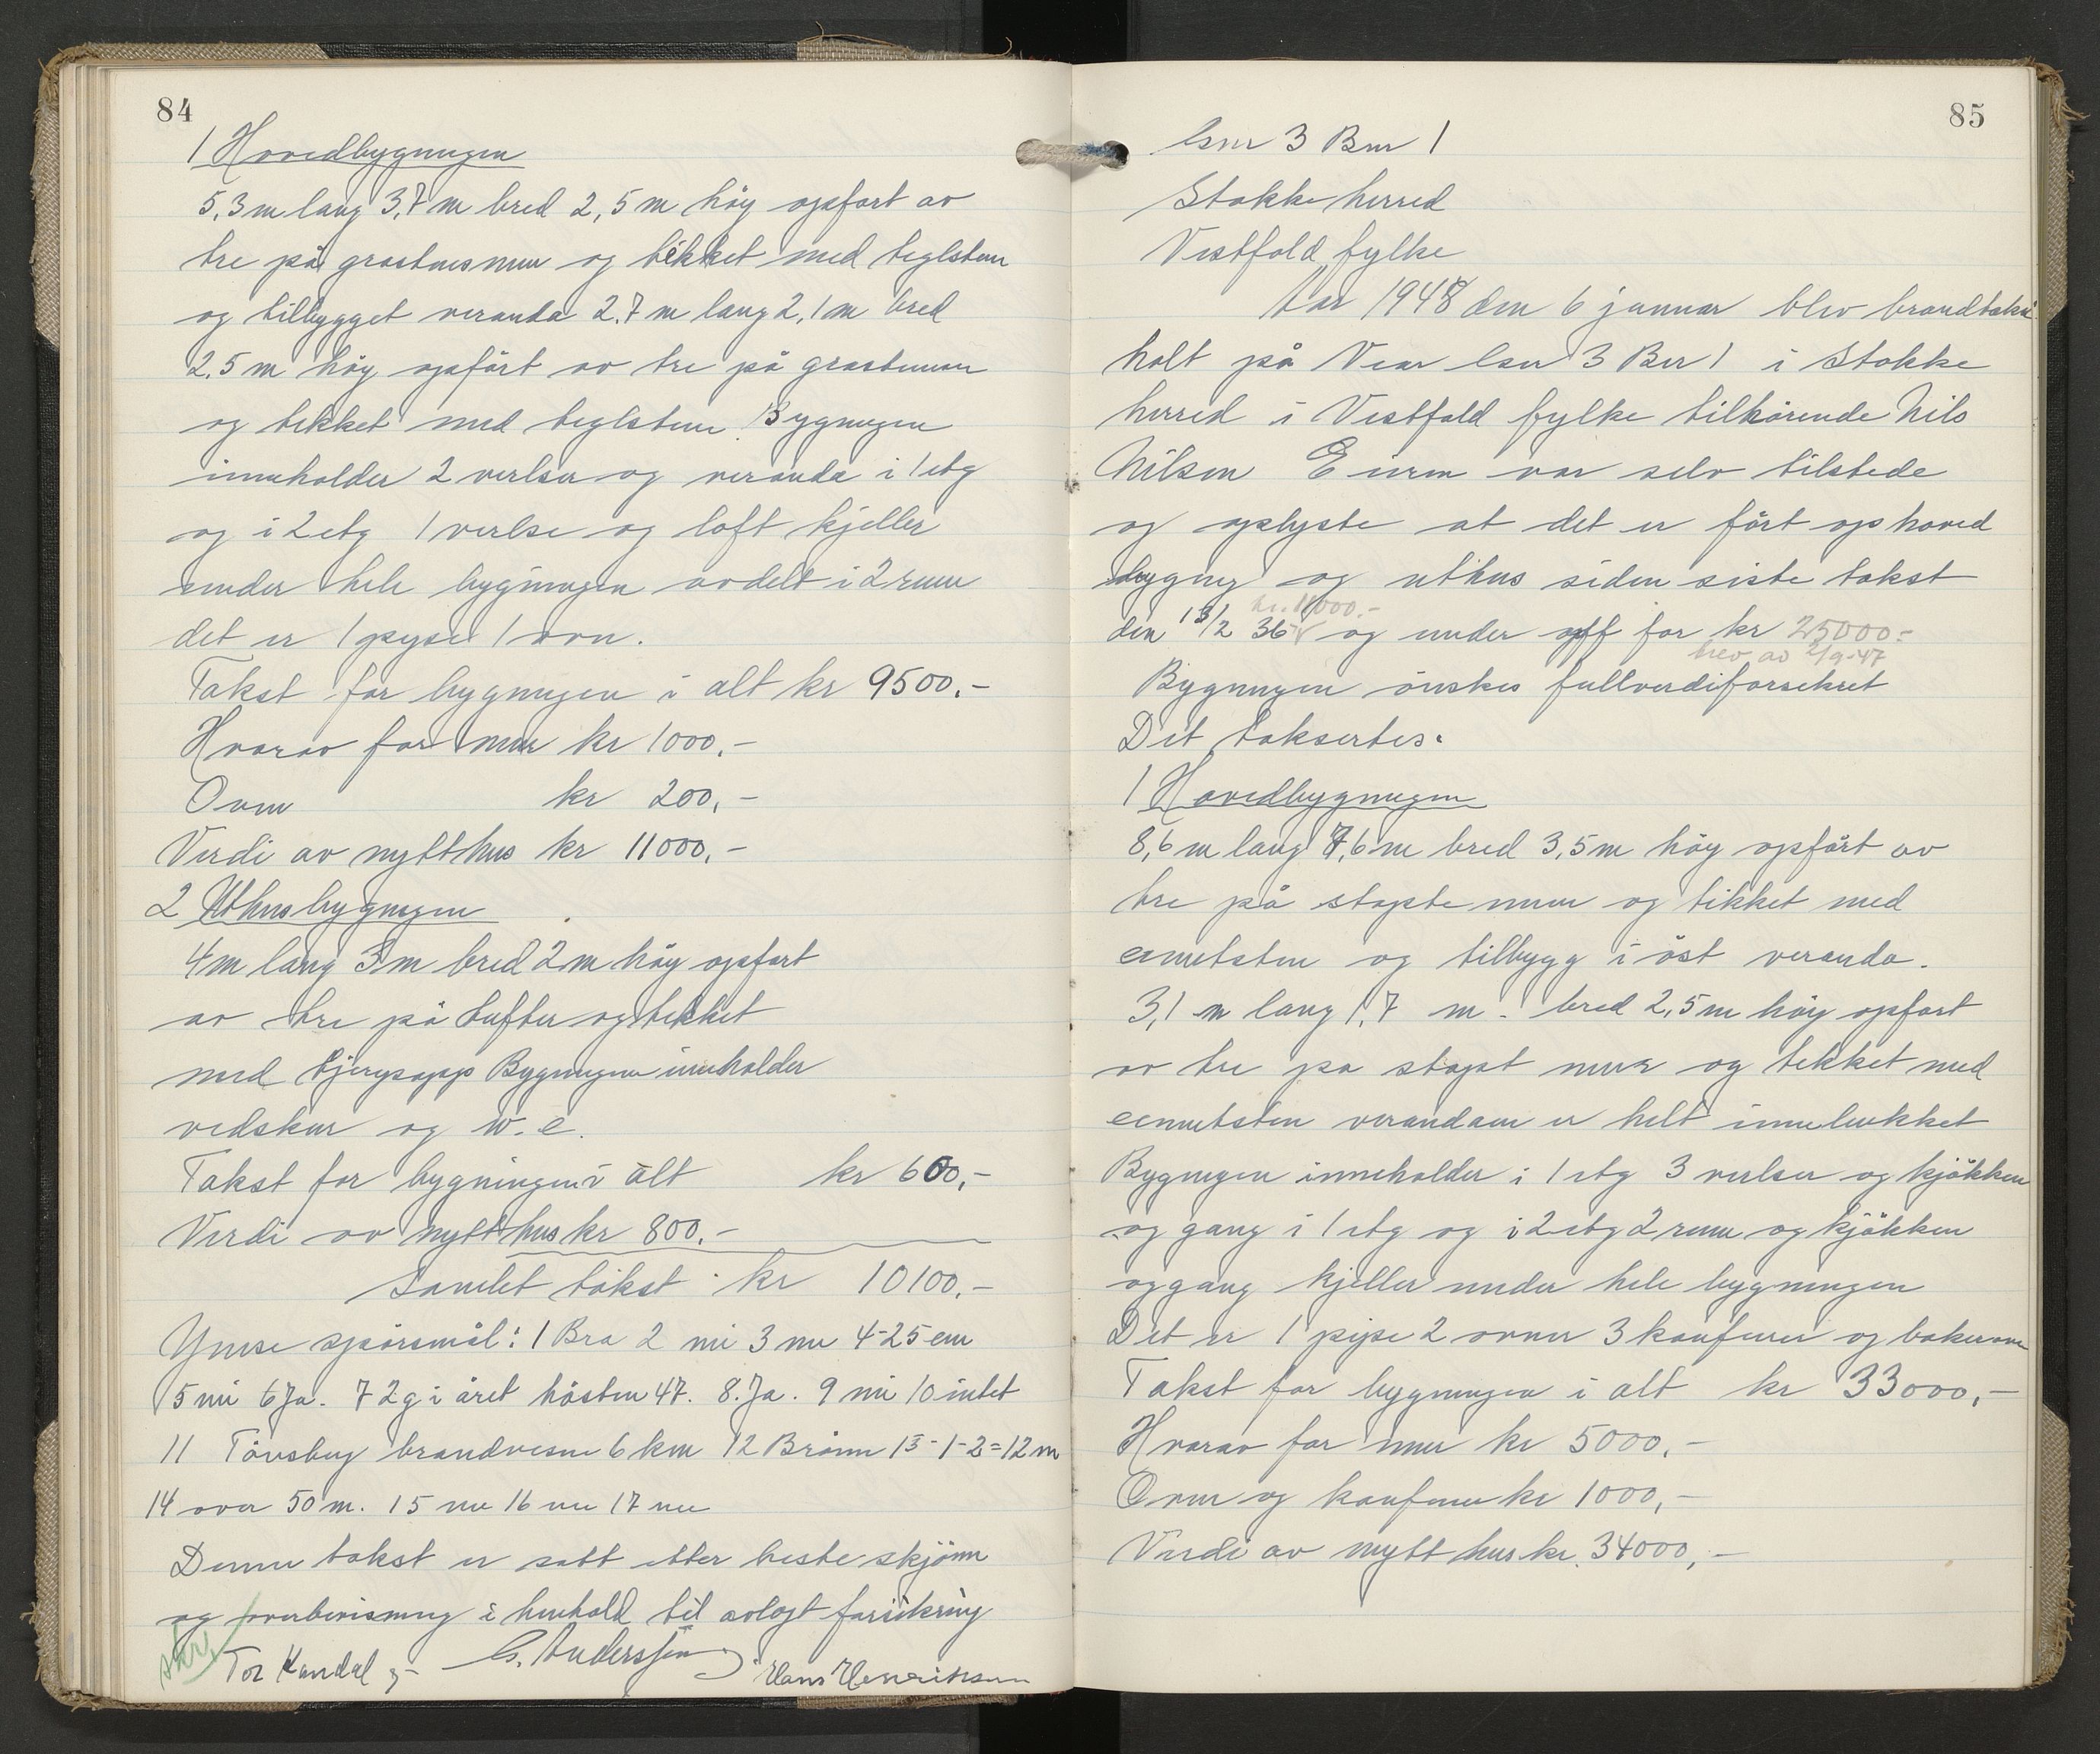 84
1 Hovedbygningen
5,3 m lang 3,7 m bred 2,5 m høy opført av
tre på gråstensmur og tekket med teglsten
og tilbygget veranda 2,7 m lang 2,1 m bred
2,5 m høy opført av tre på gråstenmur
og tekket med teglsten Bygningen
inneholder 2 verlser og veranda i 1 etg
og i 2 etg 1 verlse og loft kjeller
under hele bygningen avdelt i 2 rum
det er 1 pipe 1 ovn.
Takst for bygningen i alt kr 9500,-
Hvorav for mur kr 1000,-
Ovn kr 200,-
Verdi av nytt hus kr 11000,-
2 Uthusbygningen
4 m lang 3 m bred 2 m høy opført
av tre på tufter og tekket
med tjerepapp Bygningen inneholder
vedskur og w.c.
Takst for bygningen i alt kr 600,-
Verdi av nytt hus kr 800,-
Samlet takst kr 10100,-
Ymse spørsmål: 1 Bra 2 nei 3 nei 4-25 cm
5 nei 6 Ja. 7 2 g i året høsten 47. 8. Ja. 9 nei 10 intet
11 Tönsberg brandvesen 6 km 12 Brönn 13-1-2=12 m
14 over 50 m. 15 nei 16 nei 17 nei
Denne takst er satt etter beste skjønn
og overbevisning i henhold til avlagt forsikring
Tor Kandal G. Anderssen Hans Henriksen
85
Gnr 3 Bnr 1
Stokke herred
Vestfold fylke
Aar 1948 den 6 januar blev brandtakst
holt på Vear Gnr 3 Bnr 1 i Stokke
herred i Vestfold fylke tilhörende Nils
Nilsen Eieren var selv tilstede
og oplyste at det er fört op hoved
bygning og uthus siden siste takst
kr. 11000.-
den 13/2 36 og under off for kr 25000.-
brev av 2/9-47
Bygningen önskes fullverdiforsikret
Det taksertes.
1 Hovedbygningen
8,6 m lang 7,6 m bred 3,5 m höy opfört av
tre på stöpte mur og tekket med
cementsten og tilbygg i öst veranda.
3,1 m lang 1,7 m. bred 2,5 m höy opfört
av tre på stöpt mur og tekket med
cementsten verandaen er helt innelukket
Bygningen inneholder i 1 etg 3 verlser og kjökken
og gang i 1 etg og i 2 etg 2 rum og kjökken
og gang kjeller under hele bygningen
Det er 1 pipe 2 ovner 3 komfurer og bakerovn
Takst for bygningen i alt kr 33000,-
Hvorav for mur kr 5000,-
Ovner og komfurer kr 1000,-
Verdi av nytt hus kr. 34000,-